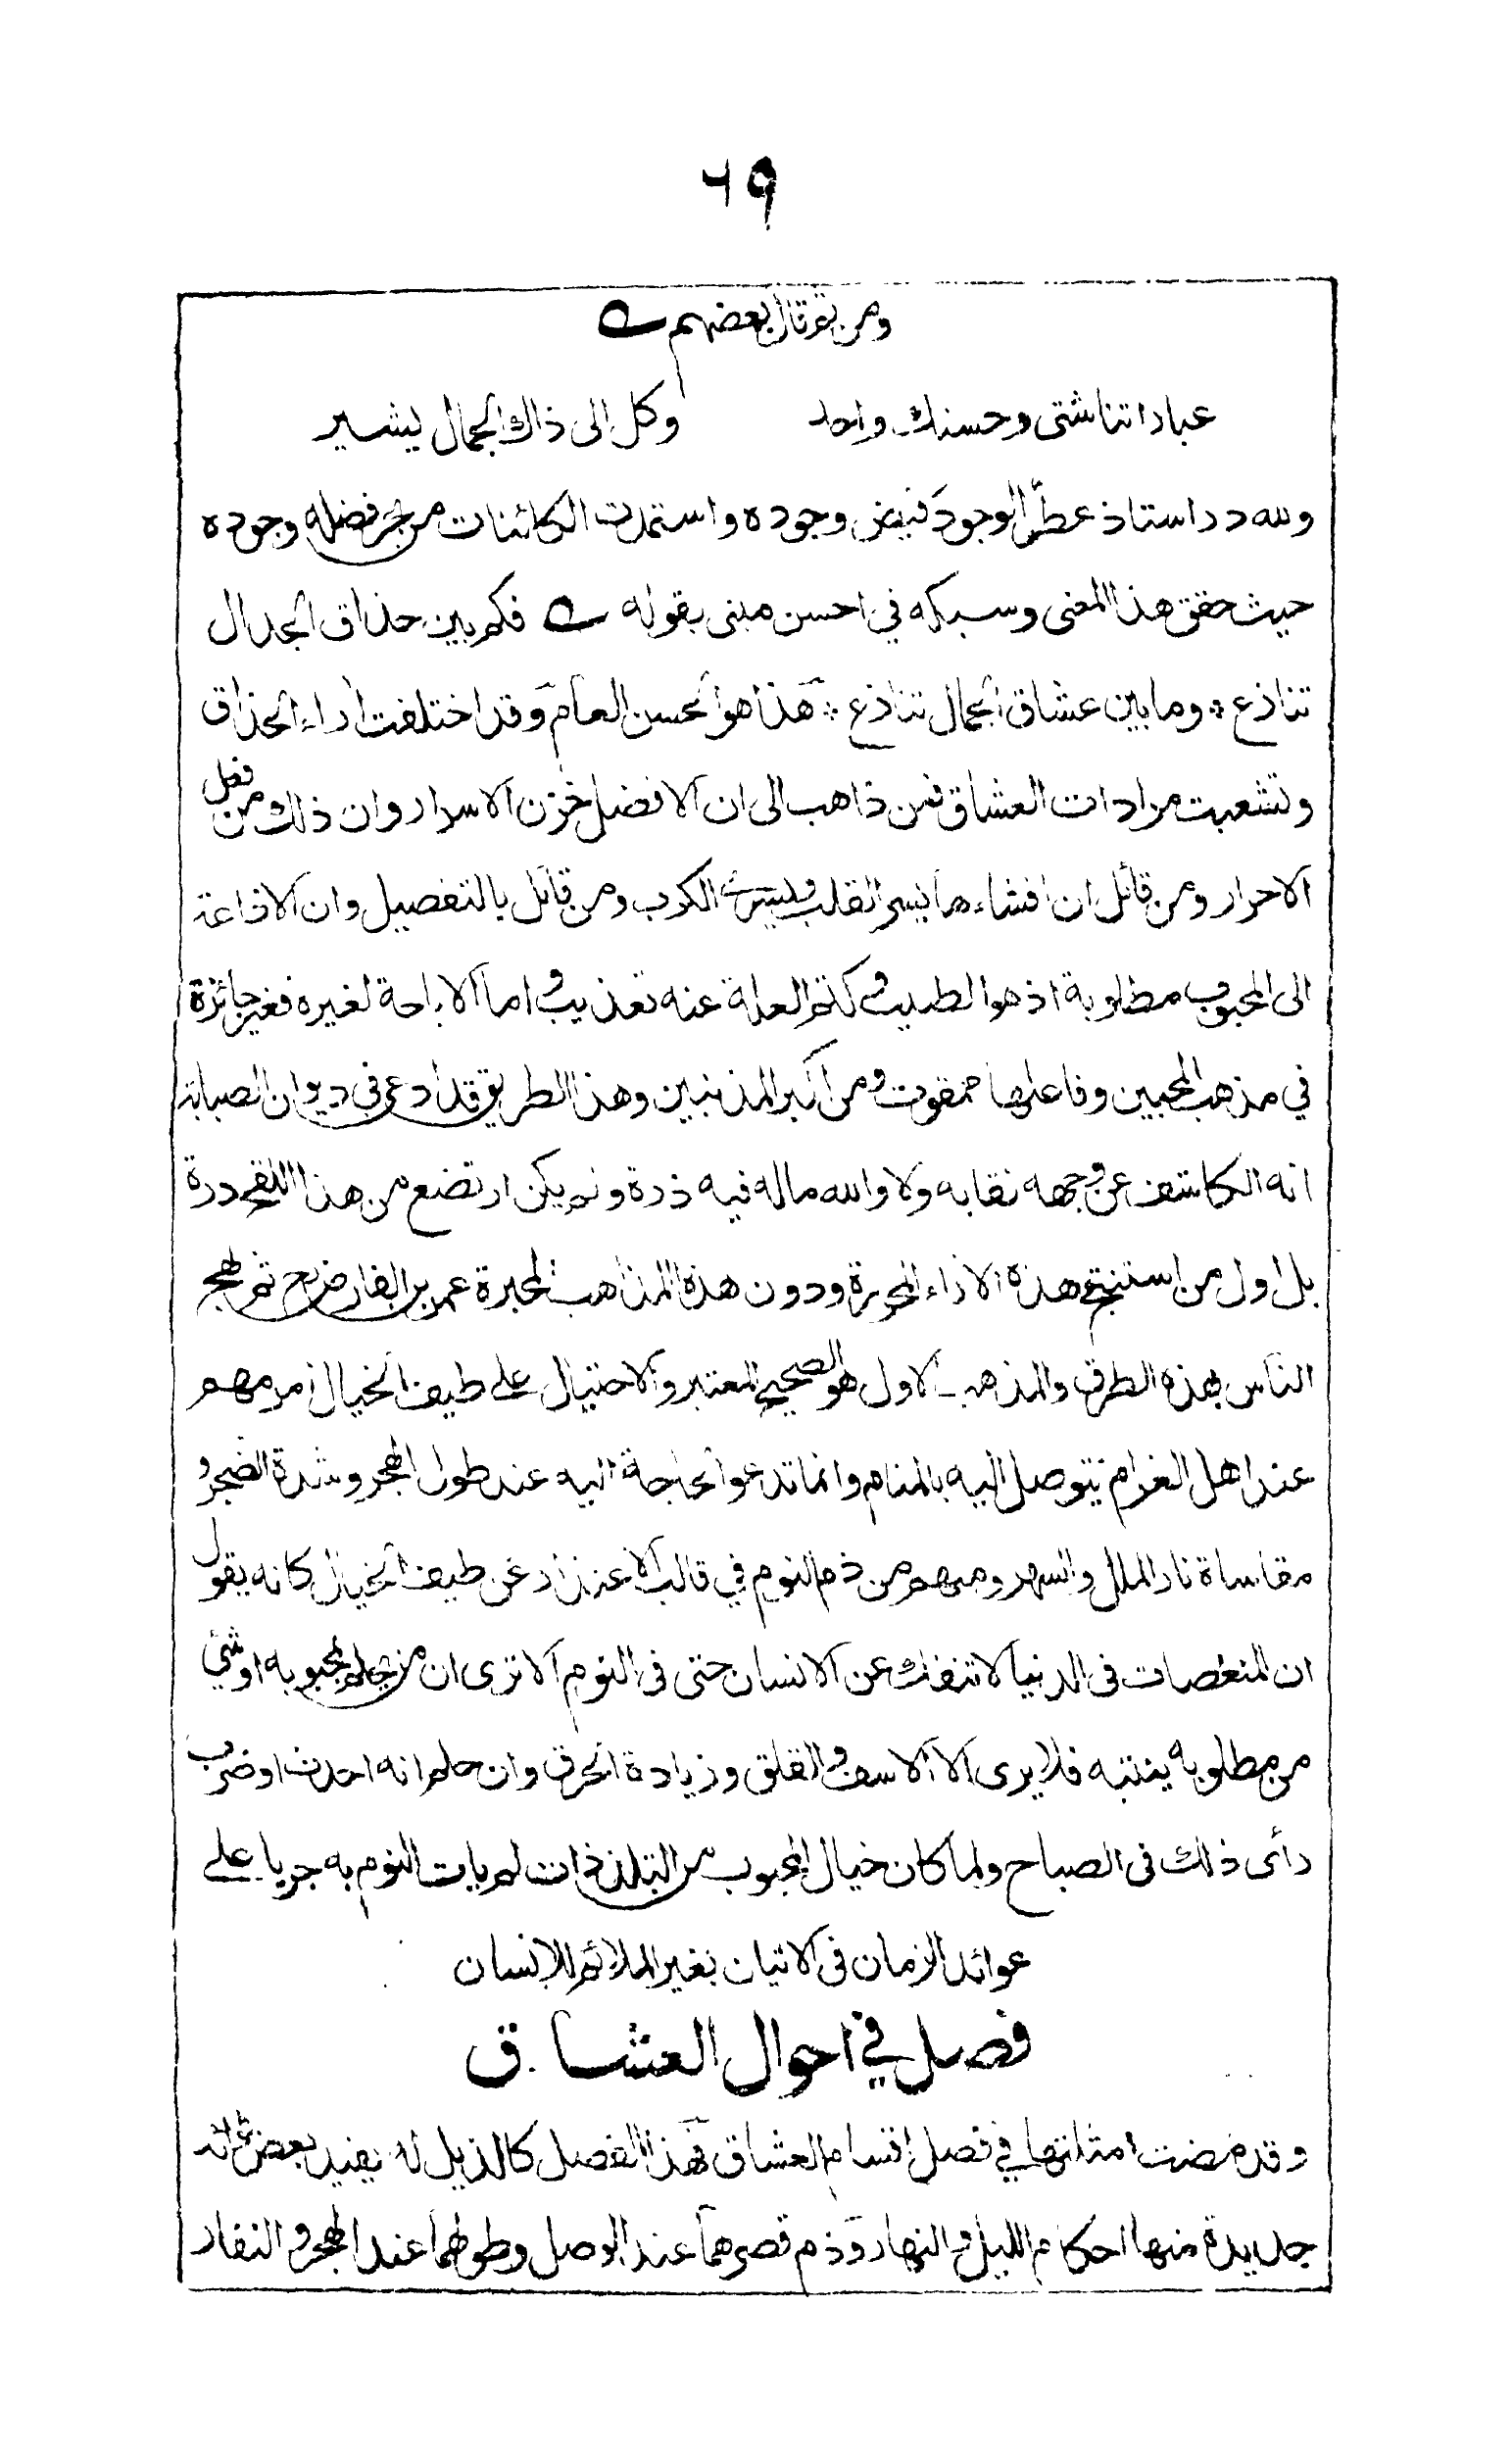 ٦٩
ومن ثم قال بعضهم
عباراتنا شتى وحسنك واحد وكل الى ذاك الجمال يشير
ولله در استاذ عطر الوجود فيض وجوده واستمدت الكائنات من بحر فضله وجوده
حيث حقق هذا المعنى وسبكه في احسن مبنى بقوله فكم بين حذاق الجدال
تنازع وما بين عشاق الجمال تنازع هذا هو الحسن العام وقد اختلفت آراء الحذاق
وتشعبت مرادات العشاق فمن ذاهب الى ان الافضل خزن الاسرار وان ذلك من فعل
الاحرار ومن قائل ان افشاءها يسر القلب الكرب ومن قائل بالتفصيل وان الاذاعة
الى المحبوب مطلوبة اذ هو الطبيب وكتم العلة عنه تعذيب واما الاباحة لغيره فغير جائزة
في مذهب المحبين وفاعلها ممقوت ومن اكبر المذنبين وهذا الطريق قد ادعى في ديوان الصبابة
انه الكاشف عن وجهه نقابه ولا والله ماله فيه ذرة ولم يكن ارتضع من هذا اللقح درة
بل اول من استنتج هذه الاراء المحررة ودون هذه المذاهب المحبرة عمر بن الفارض رح ثم لهج
الناس بهذه الطرق والمذهب الاول هو الصحيح المعتبر والاحتيال على طيف الخيال امر مهم
عند اهل الغرام يتوصل اليه بالمنام وانما تدعو الحاجة اليه عند طول الهجر وشدة الضجر و
مقاساة نار الملل والسهر ومنهم من ذم النوم في قالب الاعتذار عن طيف الخيال كانه يقول
ان المنغصات في الدنيا لا تنفك عن الانسان حتى في النوم الا ترى ان من حلم بمحبوبه او شئ
من مطلوبه ينتبه فلا يرى الا الاسف والقلق وزيادة الحرق وان حلم انه احدث او ضرب
رأى ذلك في الصباح ولما كان خيال المحبوب من التلذذات لم يات النوم به جريا على
عوائد الزمان في الاتيان بغير الملائم للانسان
فصل في احوال العشاق
وقد مضت امثلتها في فصل اقسام العشاق فهذا الفصل كالذيل له يفيد بعض
جديدة منها احكام الليل والنهار وذم قصرهما عند الوصل وطولهما عند الهجر والنفار